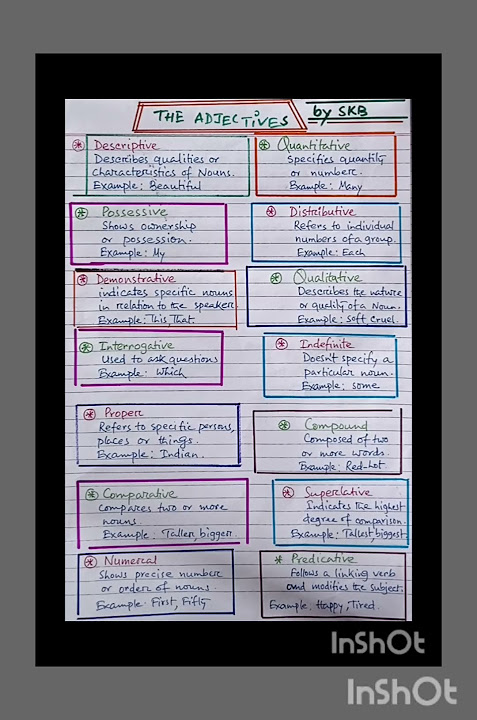 THE ADJECTIVES
by SKB
* Descriptive
Describes qualities or
characteristics of Nouns.
Example: Beautiful
* Quantitative
Specifies quantity
or number.
Example: Many
* Possessive
Shows ownership
or possession.
Example: My
* Distributive
Refers to individual
numbers of a group.
Example: Each
* Demonstrative
indicates specific nouns
in relation to the speaker
Example: This, That.
* Qualitative
Describes the nature
or quality of a Noun.
Example: Soft, Cruel.
* Interrogative
Used to ask questions
Example: Which
* Indefinite
Doesn't specify a
particular noun.
Example: some
* Proper
Refers to specific persons,
places or things.
Example: Indian.
* Compound
Composed of two
or more words.
Example: Red-hot
* Comparative
compares two or more
nouns.
Example: Taller, bigger
* Superlative
Indicates the highest
degree of comparison.
Example: Tallest, biggest
* Numeral
Shows precise number
or order of nouns.
Example: First, Fifty
* Predicative
Follows a linking verb
and modifies the subject.
Example: Happy, Tired.
InShOt
InShOt